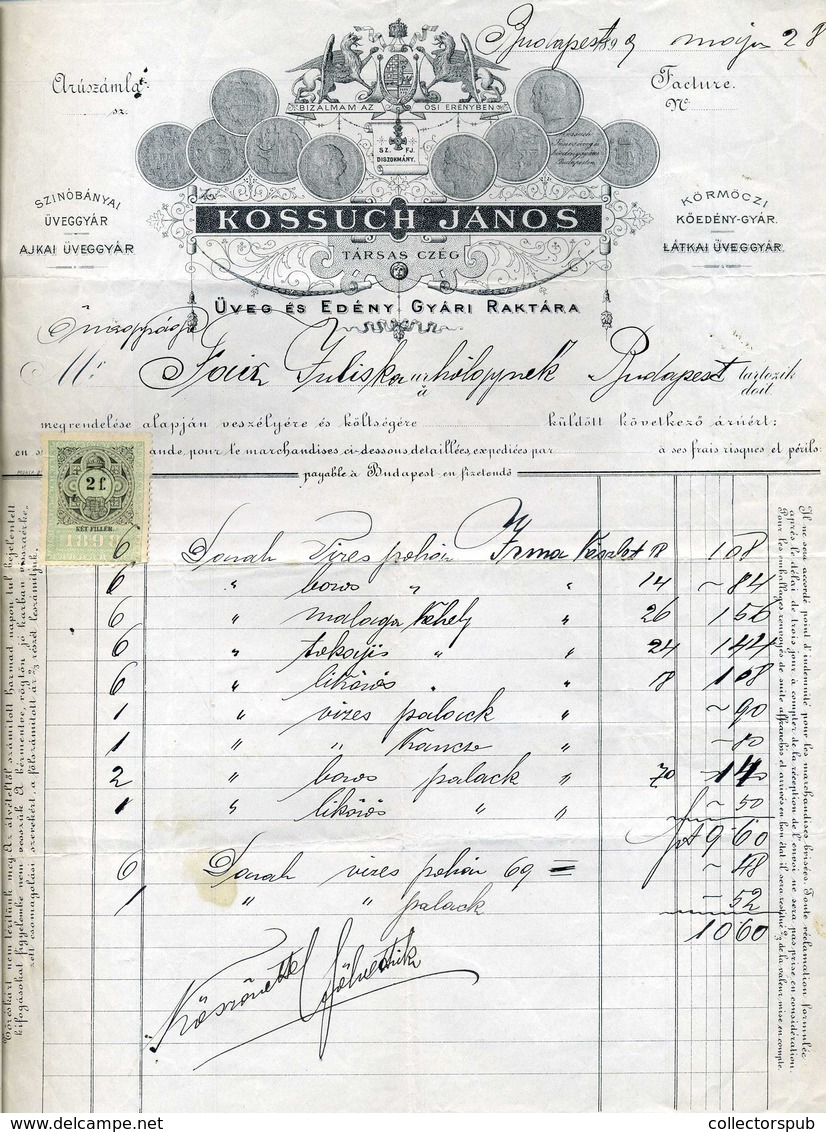 Budapest 1899 május 28
Árúszámla
sz.
Facture.
Nº
BIZALMAM AZ ŐSI ERÉNYBEN
SZ. FJ.
DISZOKMÁNY.
SZINÓBÁNYAI
ÜVEGGYÁR
AJKAI ÜVEGGYÁR
KÖRMÖCZI
KŐEDÉNY-GYÁR.
LÁTKAI ÜVEGGYÁR.
KOSSUCH JÁNOS
TÁRSAS CZÉG
ÜVEG ÉS EDÉNY GYÁRI RAKTÁRA
Mr Juliska úrhölgynek Budapest tartozik
doit
megrendelése alapján veszélyére és költségére küldött következő árúért:
ande, pour le marchandises ci-dessous, detaillées, expediées par à ses frais risques et périls:
payable à Budapest en fizetendő
2 f.
KÉT FILLÉR
1898
6 Darab Vizes pohár Irma készlet 18 108
6 " boros " " 14 ~ 84
6 " malaga kehely " 26 156
6 " tokajis " " 24 144
6 " likőrös " " 18 108
1 " vizes palack " ~ 90
1 " " kancsó " ~ 80
2 " boros palack " 70 140
1 " likőrös " " ~ 50
frt 9 60
6 Darab vizes pohár 69 = ~ 48
1 " " palack ~ 52
10 60
Köszönettel fölvettük
Töröskárt nem térítünk meg. Az átvételtől számított harmad napon túl bejelentett
kifogásokat figyelembe nem vesszük. A bérmentve, rögtön jó karban visszaérke-
zett csomagolási szerekért, a fölszámított ár 2/3 részét leszámítjuk.
Il ne sera accordé point d'indemnité pour les marchandises brisées. Toute réclamation formulée
après le délai de trois jour à compter de la réception de l'envoi ne sera pas prise en considération.
Pour les emballages renvoyés de suite affranchis et arrivés en bon état il sera restitué 2/3 de la valeur mise en compte.
collectorspub